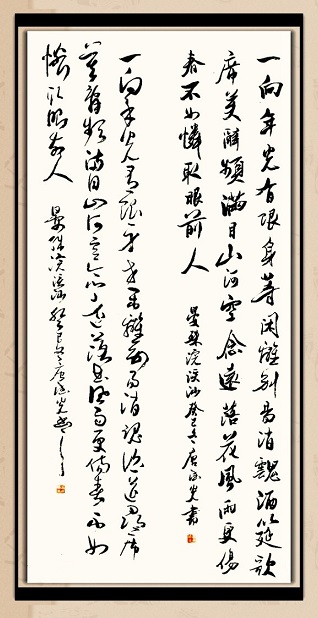 一向年光有限身等闲離别易消魂酒筵歌
席莫辭頻滿目山河空念遠落花風雨更傷
春不如憐取眼前人
晏殊浣溪沙癸巳冬唐光書
一向年光有限身等闲離别易消魂酒筵歌席
莫辭頻滿目山河空念遠落花風雨更傷春不如
憐取眼前人
晏殊浣溪沙癸巳冬唐光書